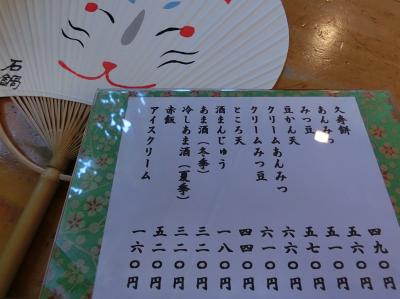 石鍋
久寿餅 四九〇円
あんみつ 五六〇円
みつ豆 五一〇円
豆かん天 五七〇円
クリームあんみつ 六六〇円
クリームみつ豆 六一〇円
ところ天 四四〇円
酒まんじゅう 一八〇円
あま酒(冬季) 三二〇円
冷しあま酒(夏季) 三二〇円
赤飯 五二〇円
アイスクリーム 一六〇円